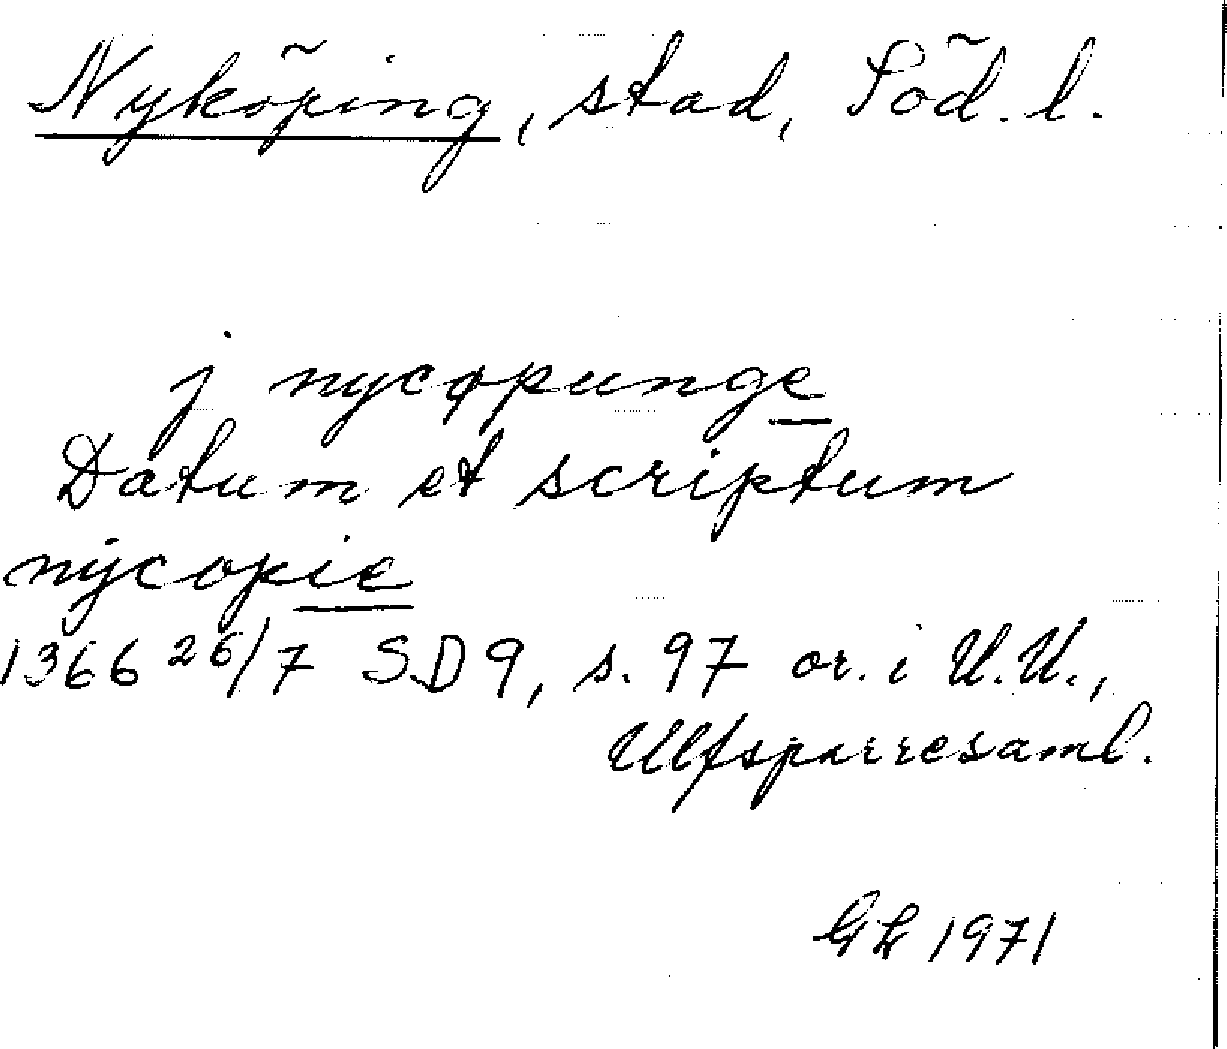 Nyköping, stad, Söd. l.
j nycøpunge
Datum et scriptum
nycopie
1366 26/7 SD9, s. 97 or. i U.U.,
Ulfsparresaml.
GL 1971